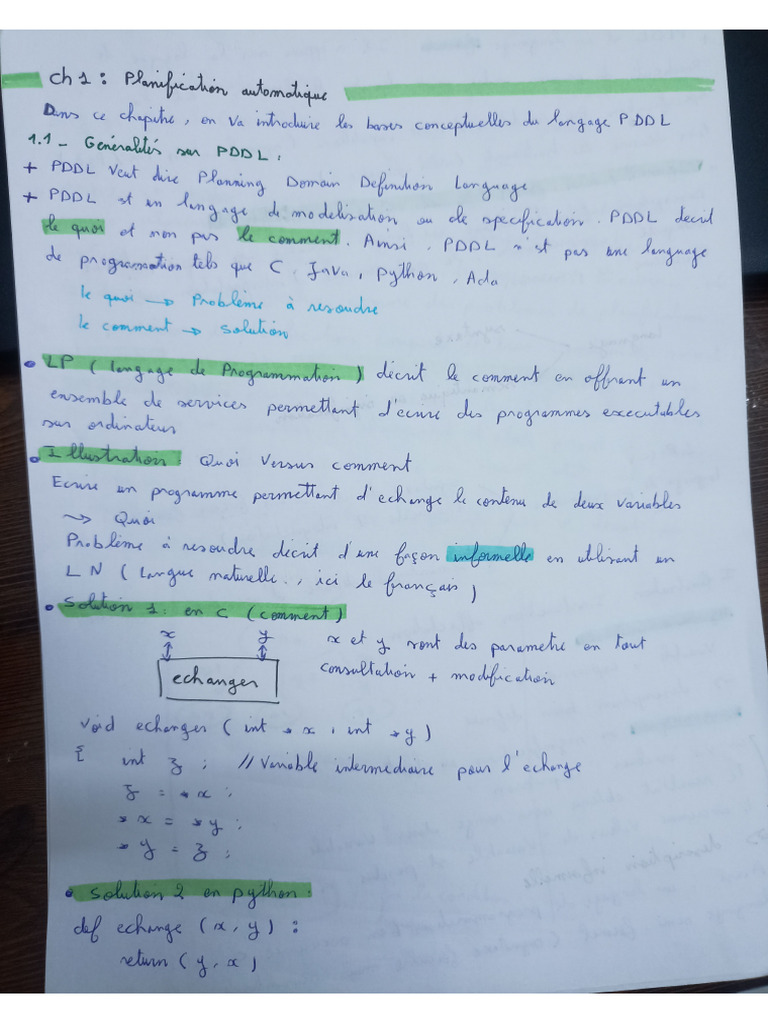 Ch 1 : Planification automatique
Dans ce chapitre, on va introduire les bases conceptuelles du langage PDDL
1.1 - Généralités sur PDDL :
+ PDDL veut dire Planning Domain Definition Language
+ PDDL est un langage de modelisation ou de specification. PDDL decrit
le quoi et non pas le comment. Ainsi, PDDL n'est pas une language
de programmation tels que C, Java, python, Ada
le quoi → Problème à resoudre
le comment → solution
• LP (langage de Programmation) décrit le comment en offrant un
ensemble de services permettant d'ecrire des programmes executables
sur ordinateur
• Illustration : Quoi Versus comment
Ecrire un programme permettant d'echange le contenu de deux variables
→ Quoi
Problème à resoudre décrit d'une façon informelle en utilisant un
LN (langue naturelle., ici le français)
• Solution 1 : en C (comment)
x y x et y sont des parametre en tout
echanger consultation + modification
void echanger (int *x, int *y)
{ int z ; // Variable intermediaire pour l'echange
z = *x ;
*x = *y ;
*y = z ;
• Solution 2 en python :
def echange (x, y) :
return (y, x)